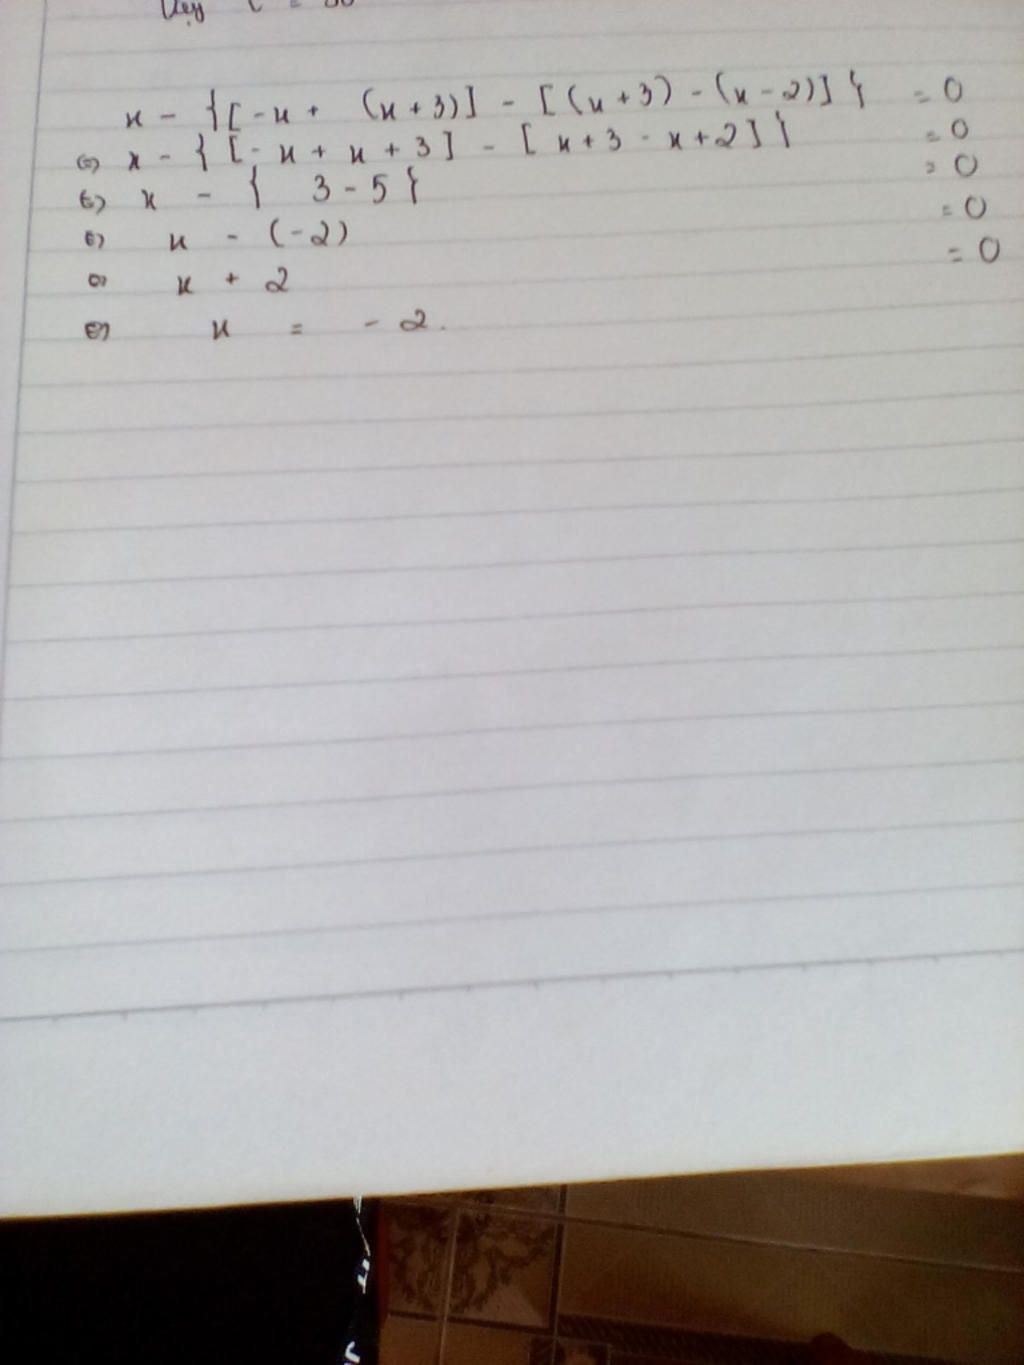 x - {[-x + (x+3)] - [(x+3) - (x-2)]} = 0
⇔ x - {[-x + x + 3] - [x+3 - x+2]} = 0
⇔ x - { 3-5 } = 0
⇔ x - (-2) = 0
⇔ x + 2 = 0
⇔ x = -2.